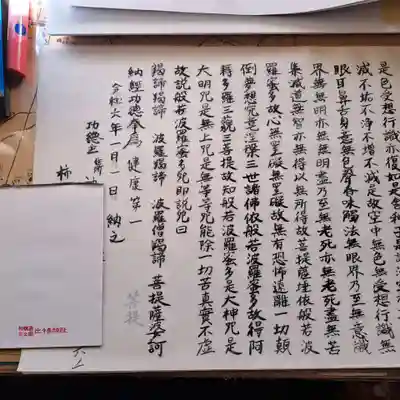 是色受想行識亦復如是舍利子是諸法
滅不垢不淨不増不減是故空中無色無受想行識無
眼耳鼻舌身意無色聲香味觸法無眼界乃至無意識
界無無明亦無無明盡乃至無老死亦無老死盡無苦
集滅道無智亦無得以無所得故菩提薩埵依般若波
羅蜜多故心無罣礙無罣礙故無有恐怖遠離一切顛
倒夢想究竟涅槃三世諸佛依般若波羅蜜多故得阿
耨多羅三藐三菩提故知般若波羅蜜多是大神咒是
大明咒是無上咒是無等等咒能除一切苦真實不虚
故説般若波羅蜜多咒即説咒曰
羯諦羯諦 波羅羯諦 波羅僧羯諦 菩提薩婆訶
納經功徳奉為 健康第一
令和六年一月一日 納之
功徳主
柿
菩提